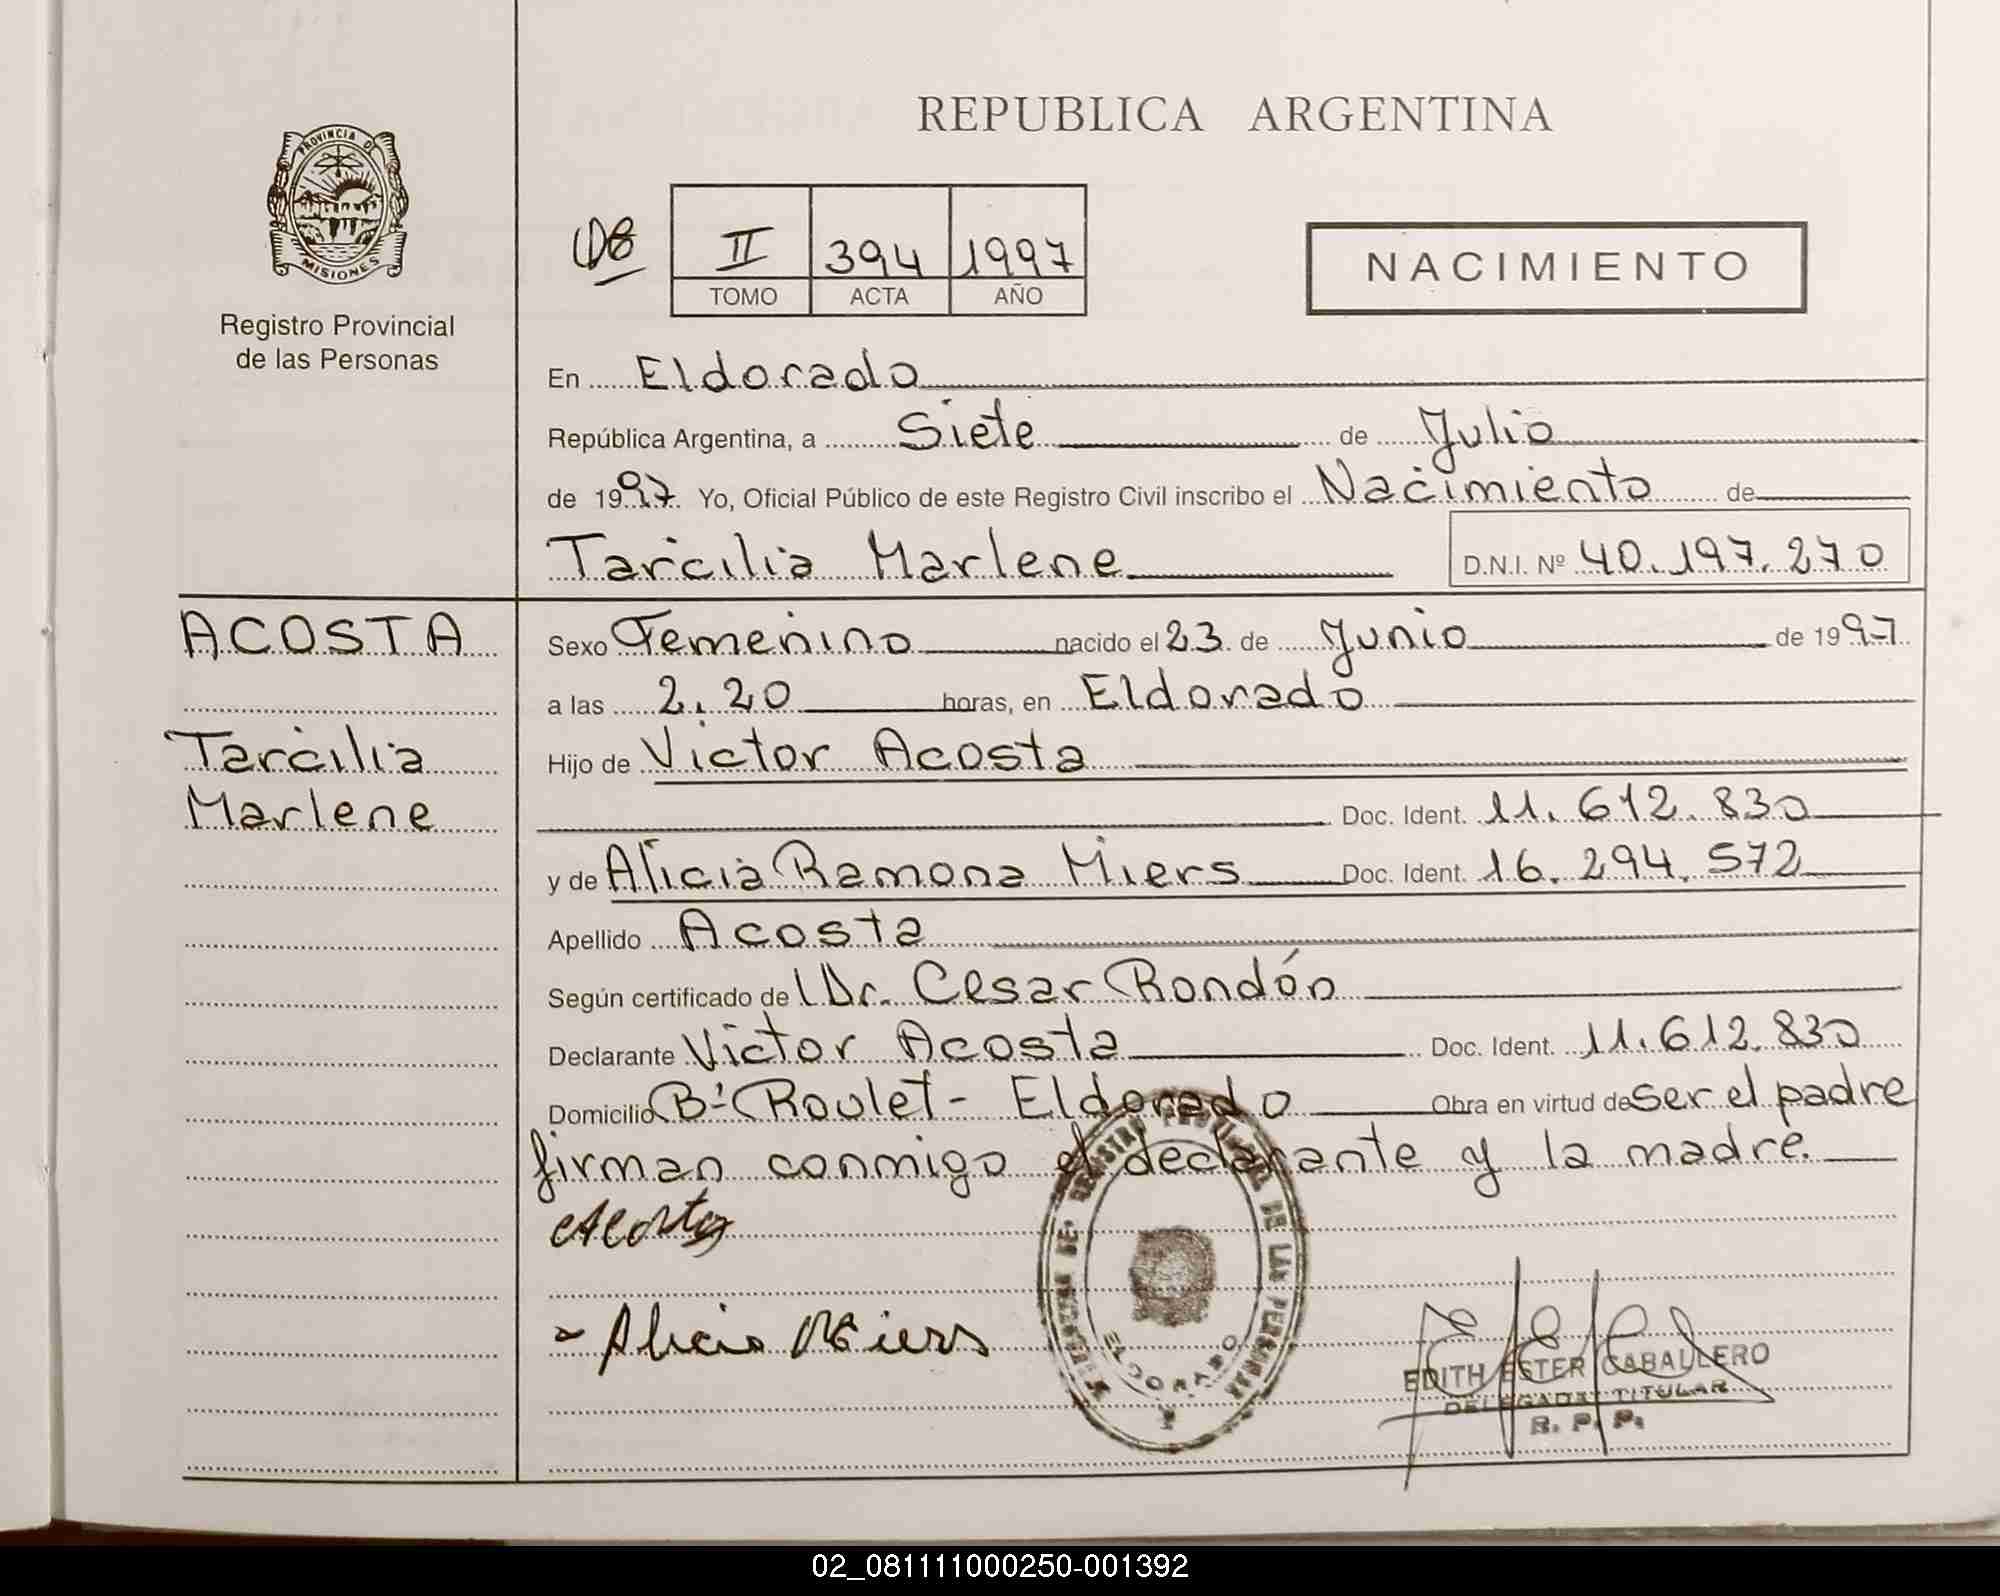 REPUBLICA ARGENTINA
PROVINCIA DE
MISIONES
Registro Provincial
de las Personas
II 394 1997
TOMO ACTA AÑO
NACIMIENTO
En Eldorado
República Argentina, a Siete de Julio
de 1997 Yo, Oficial Público de este Registro Civil inscribo el Nacimiento de
Tarcilia Marlene D.N.I. Nº 40.197.270
ACOSTA
Tarcilia
Marlene
Sexo Femenino nacido el 23 de Junio de 1997
a las 2.20 horas, en Eldorado
Hijo de Victor Acosta
Doc. Ident. 11.612.830
y de Alicia Ramona Miers Doc. Ident. 16.294.572
Apellido Acosta
Según certificado de Dr. Cesar Rondón
Declarante Victor Acosta Doc. Ident. 11.612.830
Domicilio Bº Roulet - Eldorado Obra en virtud de ser el padre
firman conmigo el declarante y la madre.
Acosta
Alicia Miers
REGISTRO PROVINCIAL DE LAS PERSONAS
ELDORADO
EDITH ESTER CABALLERO
DELEGADA TITULAR
R. P. P.
02_081111000250-001392